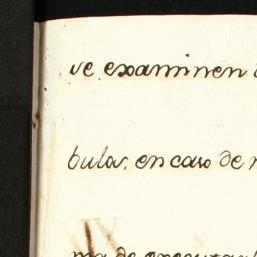 se examinen
bular. en caso de
ma de